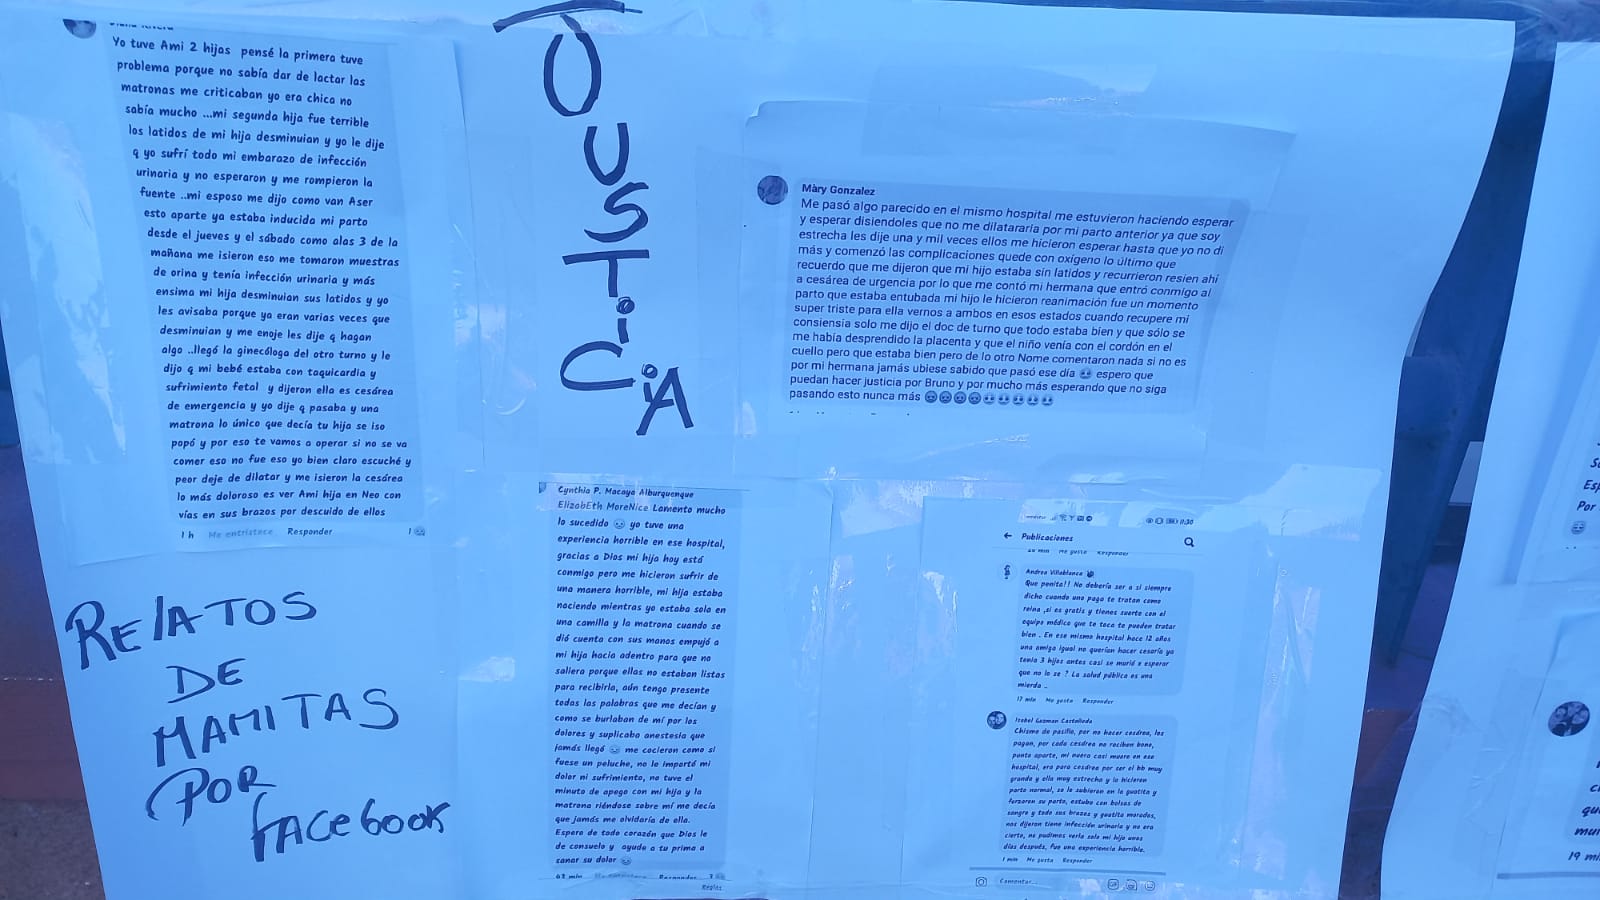 Yo tuve Ami 2 hijas pensé la primera tuve
problema porque no sabía dar de lactar las
matronas me criticaban yo era chica no
sabía mucho ...mi segunda hija fue terrible
los latidos de mi hija desminuian y yo le dije
q yo sufrí todo mi embarazo de infección
urinaria y no esperaron y me rompieron la
fuente ..mi esposo me dijo como van Aser
esto aparte ya estaba inducida mi parto
desde el jueves y el sábado como alas 3 de la
mañana me isieron eso me tomaron muestras
de orina y tenía infección urinaria y más
ensima mi hija desminuian sus latidos y yo
les avisaba porque ya eran varias veces que
desminuian y me enoje les dije q hagan
algo ..llegó la ginecóloga del otro turno y le
dijo q mi bebé estaba con taquicardia y
sufrimiento fetal y dijeron ella es cesárea
de emergencia y yo dije q pasaba y una
matrona lo único que decía tu hija se iso
popó y por eso te vamos a operar si no se va
comer eso no fue eso yo bien claro escuché y
peor deje de dilatar y me isieron la cesárea
lo más doloroso es ver Ami hija en Neo con
vías en sus brazos por descuido de ellos
1 h Me entristece Responder 1
JUSTiCiA
Màry Gonzalez
Me pasó algo parecido en el mismo hospital me estuvieron haciendo esperar
y esperar disiendoles que no me dilatararia por mi parto anterior ya que soy
estrecha les dije una y mil veces ellos me hicieron esperar hasta que yo no di
más y comenzó las complicaciones quede con oxígeno lo último que
recuerdo que me dijeron que mi hijo estaba sin latidos y recurrieron resien ahí
a cesárea de urgencia por lo que me contó mi hermana que entró conmigo al
parto que estaba entubada mi hijo le hicieron reanimación fue un momento
super triste para ella vernos a ambos en esos estados cuando recupere mi
consiensia solo me dijo el doc de turno que todo estaba bien y que sólo se
me había desprendido la placenta y que el niño venía con el cordón en el
cuello pero que estaba bien pero de lo otro Nome comentaron nada si no es
por mi hermana jamás ubiese sabido que pasó ese día 😔 espero que
puedan hacer justicia por Bruno y por mucho más esperando que no siga
pasando esto nunca más
RElATOS
DE
MAMITAS
POR
FACebook
Cynthia P. Macaya Alburquenque
ElizabEth MoreNice Lamento mucho
lo sucedido 😔 yo tuve una
experiencia horrible en ese hospital,
gracias a Dios mi hija hoy está
conmigo pero me hicieron sufrir de
una manera horrible, mi hija estaba
naciendo mientras yo estaba solo en
una camilla y la matrona cuando se
dió cuenta con sus manos empujó a
mi hija hacia adentro para que no
saliera porque ellas no estaban listas
para recibirla, aún tengo presente
todas las palabras que me decían y
como se burlaban de mí por los
dolores y suplicaba anestesia que
jamás llegó 😔 me cocieron como si
fuese un peluche, no le importó mi
dolor ni sufrimiento, no tuve el
minuto de apego con mi hija y la
matrona riéndose sobre mí me decía
que jamás me olvidaría de ella.
Espero de todo corazón que Dios le
de consuelo y ayude a tu prima a
sanar su dolor 😔
Me entristece Responder
11:30
Publicaciones
Me gusta Responder
Andrea Villablanca
Que penita!! No debería ser a si siempre
dicho cuando uno paga te tratan como
reina ,si es gratis y tienes suerte con el
equipo médico que te toca te pueden tratar
bien . En ese mismo hospital hace 12 años
una amiga igual no querían hacer cesaría ya
tenía 3 hijos antes casi se murió x esperar
que no lo se ? La salud pública es una
mierda ..
17 min Me gusta Responder
Isabel Guzman Castañeda
Chisme de pasillo, por no hacer cesárea, les
pagan, por cada cesárea no reciben bono,
punto aparte, mi nuera casi muere en ese
hospital, era para cesárea por ser el bb muy
grande y ella muy estrecha y le hicieron
parto normal, se le subieron en la guatita y
forzaron su parto, estubo con bolsas de
sangre y todo sus brazos y guatita morados,
nos dijeron tiene infección urinaria y no era
cierto, no pudimos verla solo mi hijo unos
días después, fue una experiencia horrible.
1 min Me gusta Responder
Comentar...
Por
19 mi